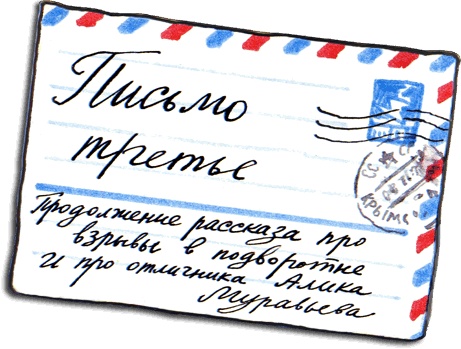 Письмо
третье
Продолжение рассказа про
взрывы в подворотне
и про отличника Алика
Муравьева
КРЫМС